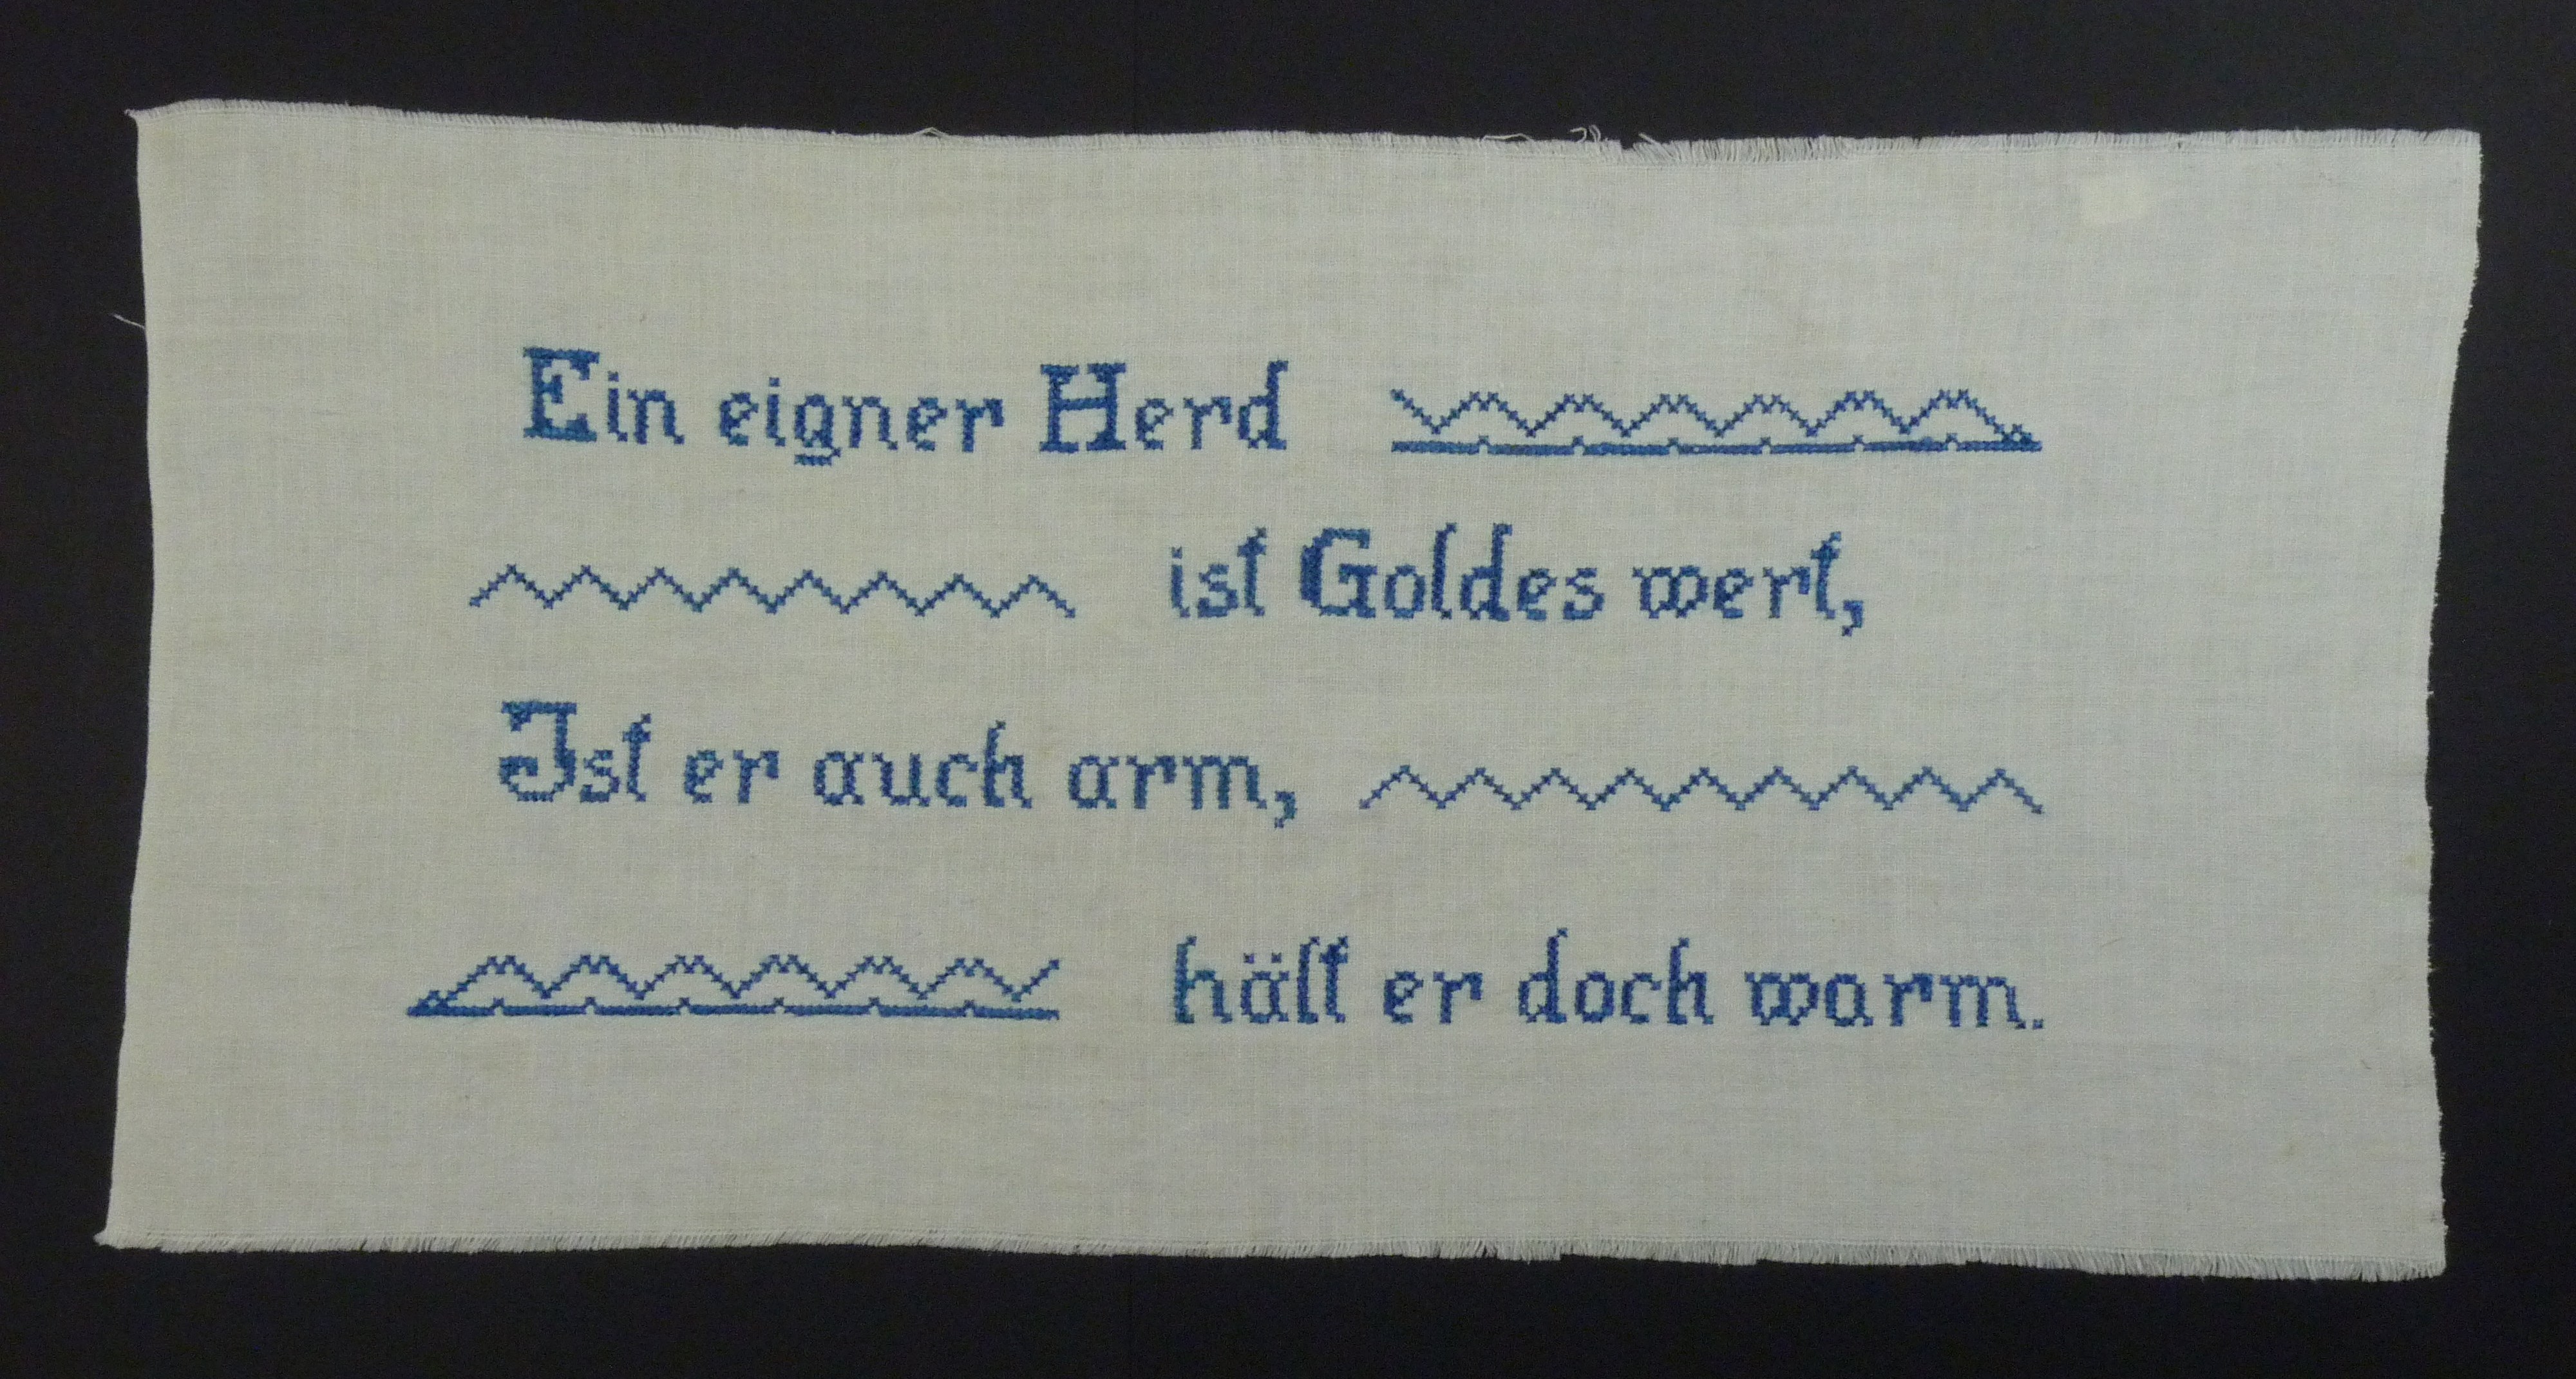 Ein eigner Herd
ist Goldes wert,
Ist er auch arm,
hält er doch warm.